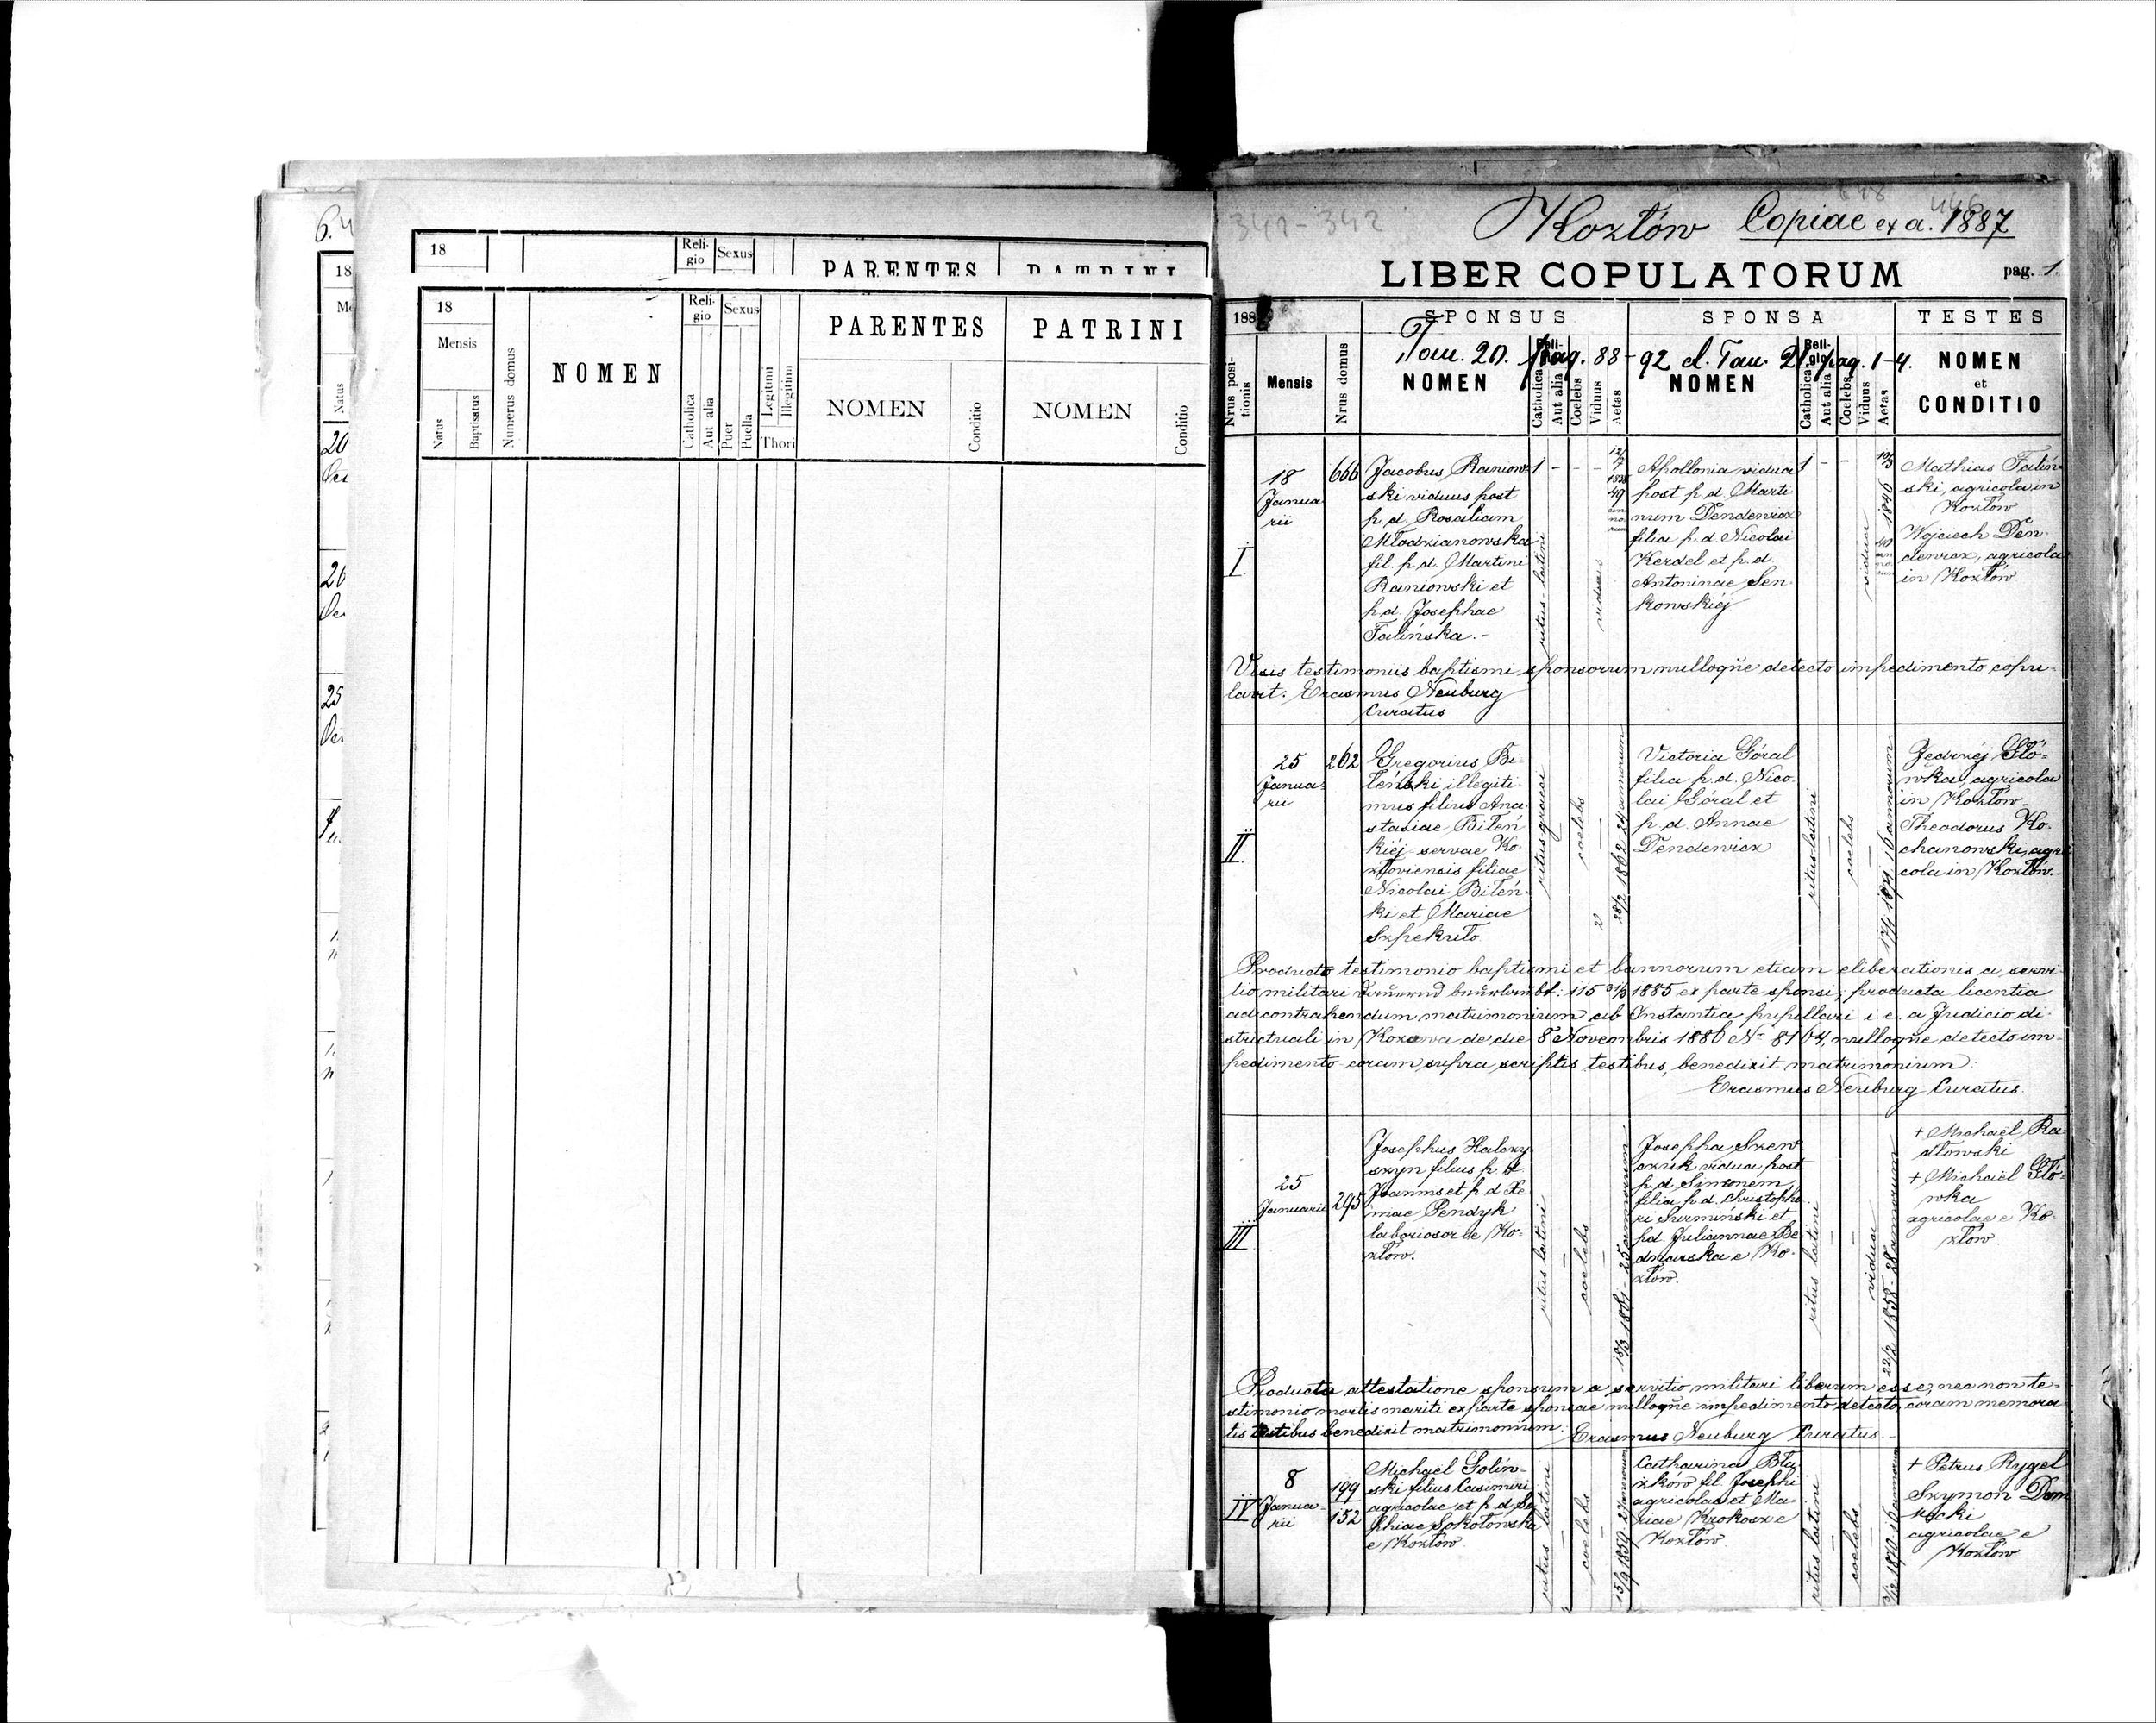 18
Religio
Sexus
PARENTES
PATRINI
18
Mensis
Natus
Baptisatus
Numerus domus
NOMEN
Religio
Catholica
Aut alia
Sexus
Puer
Puella
Legitimi
Illegitimi
Thori
PARENTES
NOMEN
Conditio
PATRINI
NOMEN
Conditio
341-342
Kozłów Copiae ex a. 1887
LIBER COPULATORUM
pag. 1.
188
SPONSUS
SPONSA
TESTES
Tom. 20. pag. 88-92 et Tom. 21. pag. 1-4.
Nrus positionis
Mensis
Nrus domus
NOMEN
Religio
Catholica
Aut alia
Coelebs
Viduus
Aetas
NOMEN
Religio
Catholica
Aut alia
Coelebs
Viduus
Aetas
NOMEN
et
CONDITIO
I
18
Janua
rii
666
Jacobus Raniow
ski viduus post
p. d. Rosaliam
Młodzianowska
fil. p. d. Martini
Raniowski et
p. d. Josephae
Falińska.-
1.
ritus latini
viduus
1838
49
annorum
Apollonia vidua
post p. d. Marti
num Dendewicz
filia p. d. Nicolai
Kerdel et p. d.
Antoninae Sen
kowskiéj
1
vidua
1846
40
annorum
Mathias Faliń-
ski, agricola in
Kozłów
Wojciech Den
dewicz, agricola
in Kozłów
Visis testimoniis baptismi sponsorum nulloque detecto impedimento copu-
lavit: Erasmus Neuburg
Curatus
II
25
Janua-
rii
262
Gregorius Bi-
leński illegiti-
mus filius Ana
stasiae Bileń
kiéj servae Ko-
złoviensis filiae
Nicolai Bileń-
ki et Mariae
Szpekuło.
ritus graeci
coelebs
28/2 1862 24 annorum
Victoria Góral
filia p. d. Nico-
lai Góral et
p. d. Annae
Dendewicz
ritus latini
coelebs
17/4 1871 16 annorum
Jędrzéj Głó-
wka agricola
in Kozłów-
Theodorus Ko-
chanowski, agri
cola in Kozłów.-
Producto testimonio baptismi et bannorum etiam eliberationis a servi
tio militari 115 31/3 1885 ex parte sponsi; producta licentia
ad contrahendum matrimonium ab Instantia pupillari i. e. a Judicio di-
strictuali in Kozowa de die 8 Novembris 1886 N- 8164, nulloque detecto im-
pedimento coram supra scriptis testibus, benedixit matrimonium:
Erasmus Neuburg Curatus.
III
25
Januarii
295
Josephus Halazy
szyn filius p. d.
Joannis et p. d. Xe
niae Pendyk
laboriosor e Ko-
złów.
ritus latini
coelebs
18/3 1861 - 25 annorum
Josepha Szew
czuk vidua post
p. d. Simonem,
filia p. d. Christopho
ri Surmiński et
p. d. Juliannae Be
dnarska e Ko-
złów.
ritus latini
vidua
22/2 1858 - 28 annorum
+ Michaël Ra-
dłowski
+ Michaël Głó-
wka
agricolae e Ko-
złów
Producta attestatione sponsum a servitio militari liberum esse, nec non te-
stimonio mortis mariti ex parte sponsae nulloque impedimento detecto, coram memora
tis testibus benedixit matrimonium: Erasmus Neuburg Curatus.-
IV
8
Janua-
rii
199
152
Michaël Goliń-
ski filius Casimiri
agricolae et p. d. So
phiae Sokołowska
e Kozłów.
ritus latini
coelebs
15/9 1859 27 annorum
Catharina Bła
żków fil. Josephi
agricolae et Ma
riae Krokosz e
Kozłów
ritus latini
coelebs
1870 16 annorum
+ Petrus Rygel
Szymon Dom
agricolae e
Kozłów